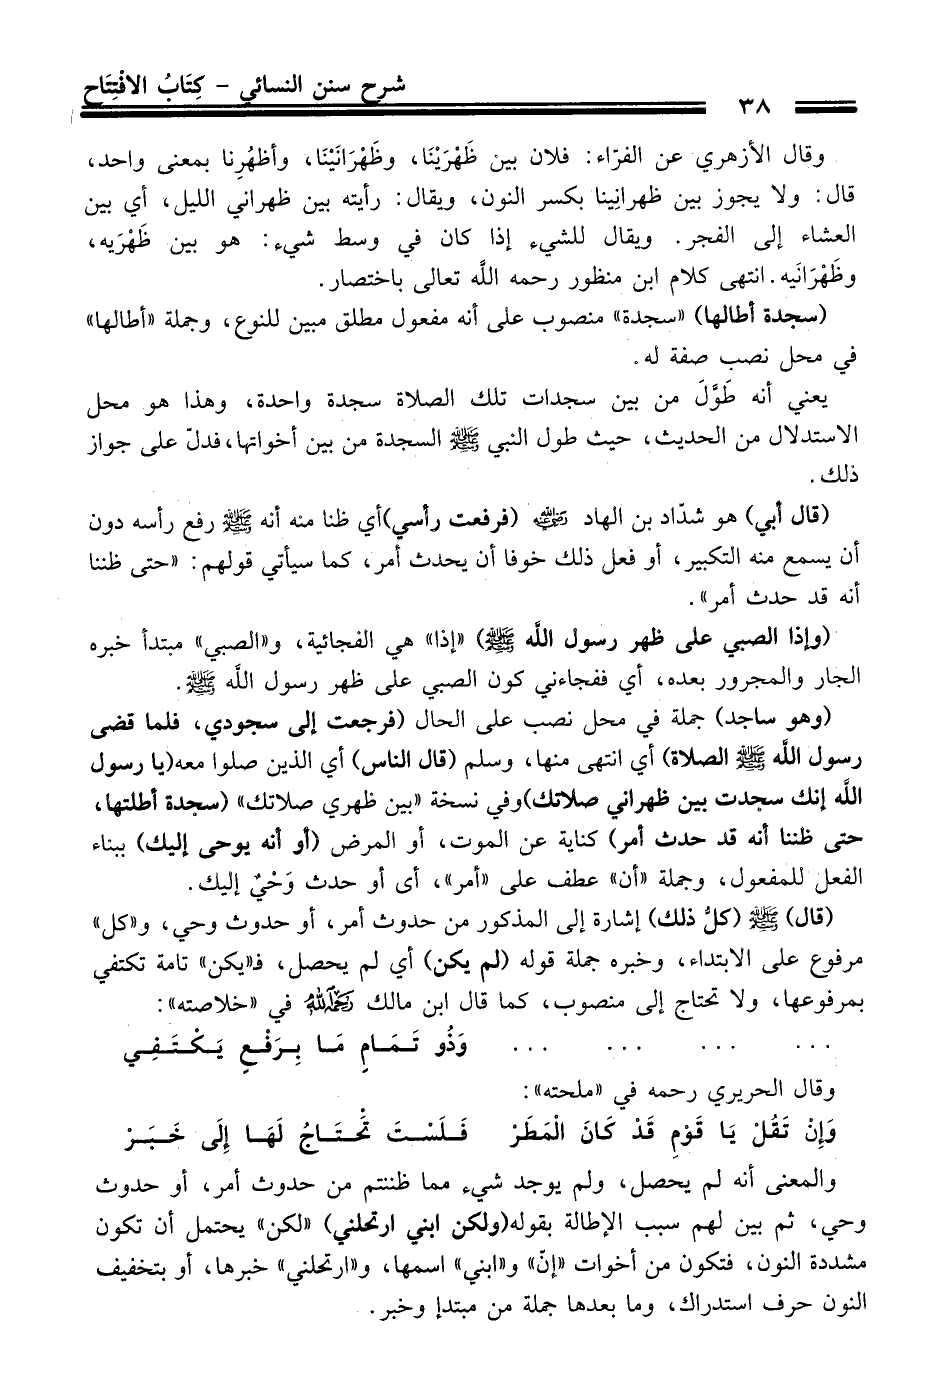 شرح سنن النسائي – كِتَابُ الافْتِتَاح
٣٨
وقال الأزهري عن الفرّاء: فلان بين ظَهْرَيْنَا، وظَهْرَانَيْنَا، وأظهُرِنا بمعنى واحد،
قال: ولا يجوز بين ظهرانِينا بكسر النون، ويقال: رأيته بين ظهراني الليل، أي بين
العشاء إلى الفجر. ويقال للشيء إذا كان في وسط شيء: هو بين ظَهْرَيه،
وظَهْرَانَيه. انتهى كلام ابن منظور رحمه اللَّه تعالى باختصار.
(سجدة أطالها) «سجدة» منصوب على أنه مفعول مطلق مبين للنوع، وجملة «أطالها»
في محل نصب صفة له.
يعني أنه طَوَّلَ من بين سجدات تلك الصلاة سجدة واحدة، وهذا هو محل
الاستدلال من الحديث، حيث طول النبي ﷺ السجدة من بين أخواتها، فدلّ على جواز
ذلك.
(قال أبي) هو شدّاد بن الهاد رضي الله عنه (فرفعت رأسي)أي ظنا منه أنه ﷺ رفع رأسه دون
أن يسمع منه التكبير، أو فعل ذلك خوفا أن يحدث أمر، كما سيأتي قولهم: «حتى ظننا
أنه قد حدث أمر».
(وإذا الصبي على ظهر رسول اللَّه ﷺ) «إذا» هي الفجائية، و«الصبي» مبتدأ خبره
الجار والمجرور بعده، أي ففجاءني كون الصبي على ظهر رسول اللَّه ﷺ.
(وهو ساجد) جملة في محل نصب على الحال (فرجعت إلى سجودي، فلما قضى
رسول اللَّه ﷺ الصلاة) أي انتهى منها، وسلم (قال الناس) أي الذين صلوا معه(يا رسول
اللَّه إنك سجدت بين ظهراني صلاتك)وفي نسخة «بين ظهري صلاتك» (سجدة أطلتها،
حتى ظننا أنه قد حدث أمر) كناية عن الموت، أو المرض (أو أنه يوحى إليك) ببناء
الفعل للمفعول، وجملة «أن» عطف على «أمر»، أى أو حدث وَحْيٌ إليك.
(قال) ﷺ (كلُّ ذلك) إشارة إلى المذكور من حدوث أمر، أو حدوث وحي، و«كل»
مرفوع على الابتداء، وخبره جملة قوله (لم يكن) أي لم يحصل، فـ«يكن» تامة تكتفي
بمرفوعها، ولا تحتاج إلى منصوب، كما قال ابن مالك رحمه الله في «خلاصته»:
... ... ... ... وَذُو تَمَامٍ مَا بِرَفْعٍ يَكْتَفِي
وقال الحريري رحمه في «ملحته»:
وَإِنْ تَقُلْ يَا قَوْمِ قَدْ كَانَ الْمَطَرْ فَلَسْتَ تَحْتَاجُ لَهَا إِلَى خَبَرْ
والمعنى أنه لم يحصل، ولم يوجد شيء مما ظننتم من حدوث أمر، أو حدوث
وحي، ثم بين لهم سبب الإطالة بقوله(ولكن ابني ارتحلني) «لكن» يحتمل أن تكون
مشددة النون، فتكون من أخوات «إنّ» و«ابني» اسمها، و«ارتحلني» خبرها، أو بتخفيف
النون حرف استدراك، وما بعدها جملة من مبتدإ وخبر.